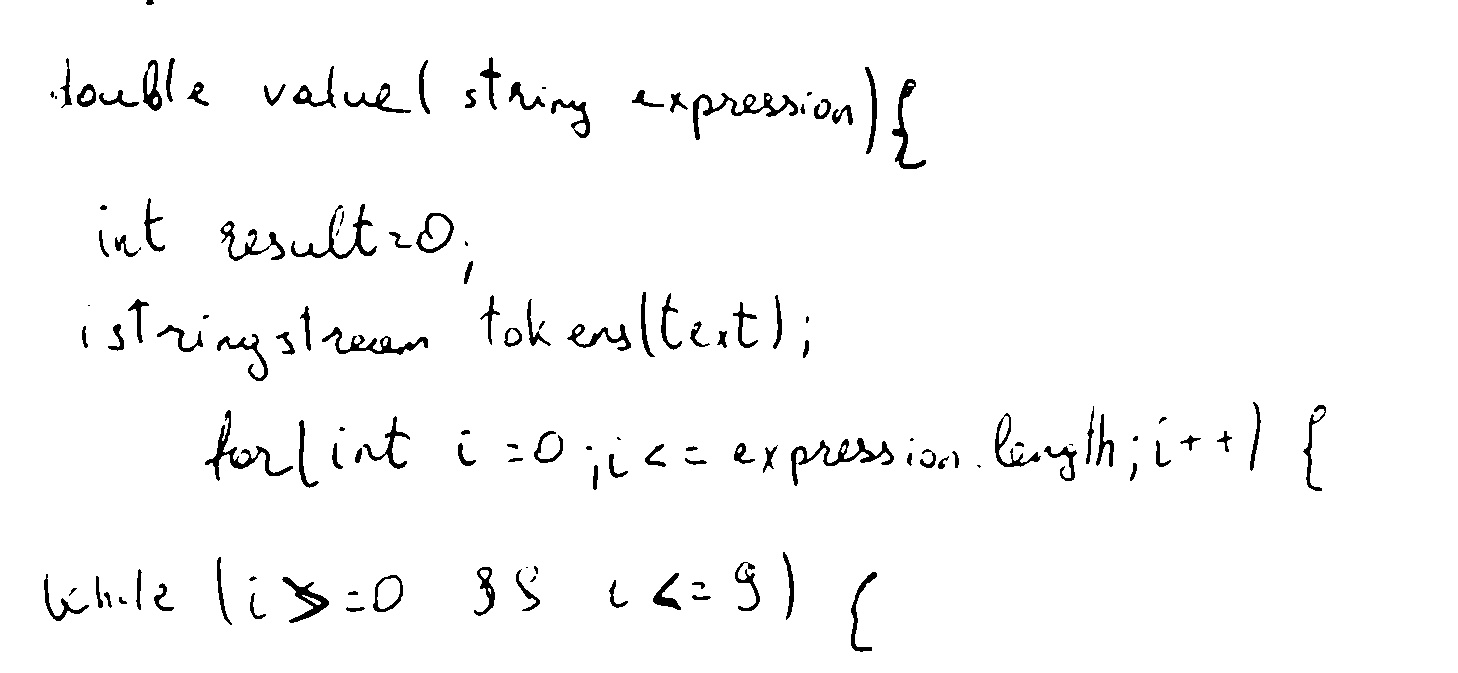 double value(string expression){
int result=0;
istringstream tokens(text);
for(int i=0;i<=expression.length;i++) {
while (i>=0 && i<=9) {